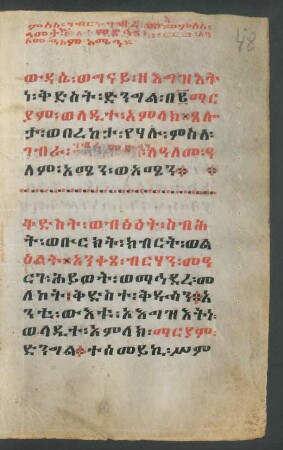 48
ውዳሴ፡ወግናይ፡ዘእግዝእት
ነ፡ቅድስት፡ድንግል፡በ፪ማር
ያም፡ወላዲተ፡አምላክ፡ጸሎ
ታ፡ወበረከታ፡የሃሉ፡ምስለ፡
ገብራ፡ለዓለመ፡ዓ
ለም፡አሜን፡ወአሜን።
ቅድስት፡ወብፅዕት፡ስብሕ
ት፡ወቡርክት፡ክብርት፡ወል
ዕልት፡አንቀጸ፡ብርሃን፡መዓ
ርገ፡ሕይወት፡ወማኅደረ፡መ
ለኮት፡ቅድስተ፡ቅዱሳን፡አ
ንቲ፡ውእቱ፡እግዝእትነ፡
ወላዲተ፡አምላክ፡ማርያም፡
ድንግል፡ተሰመይኪ፡ሥም